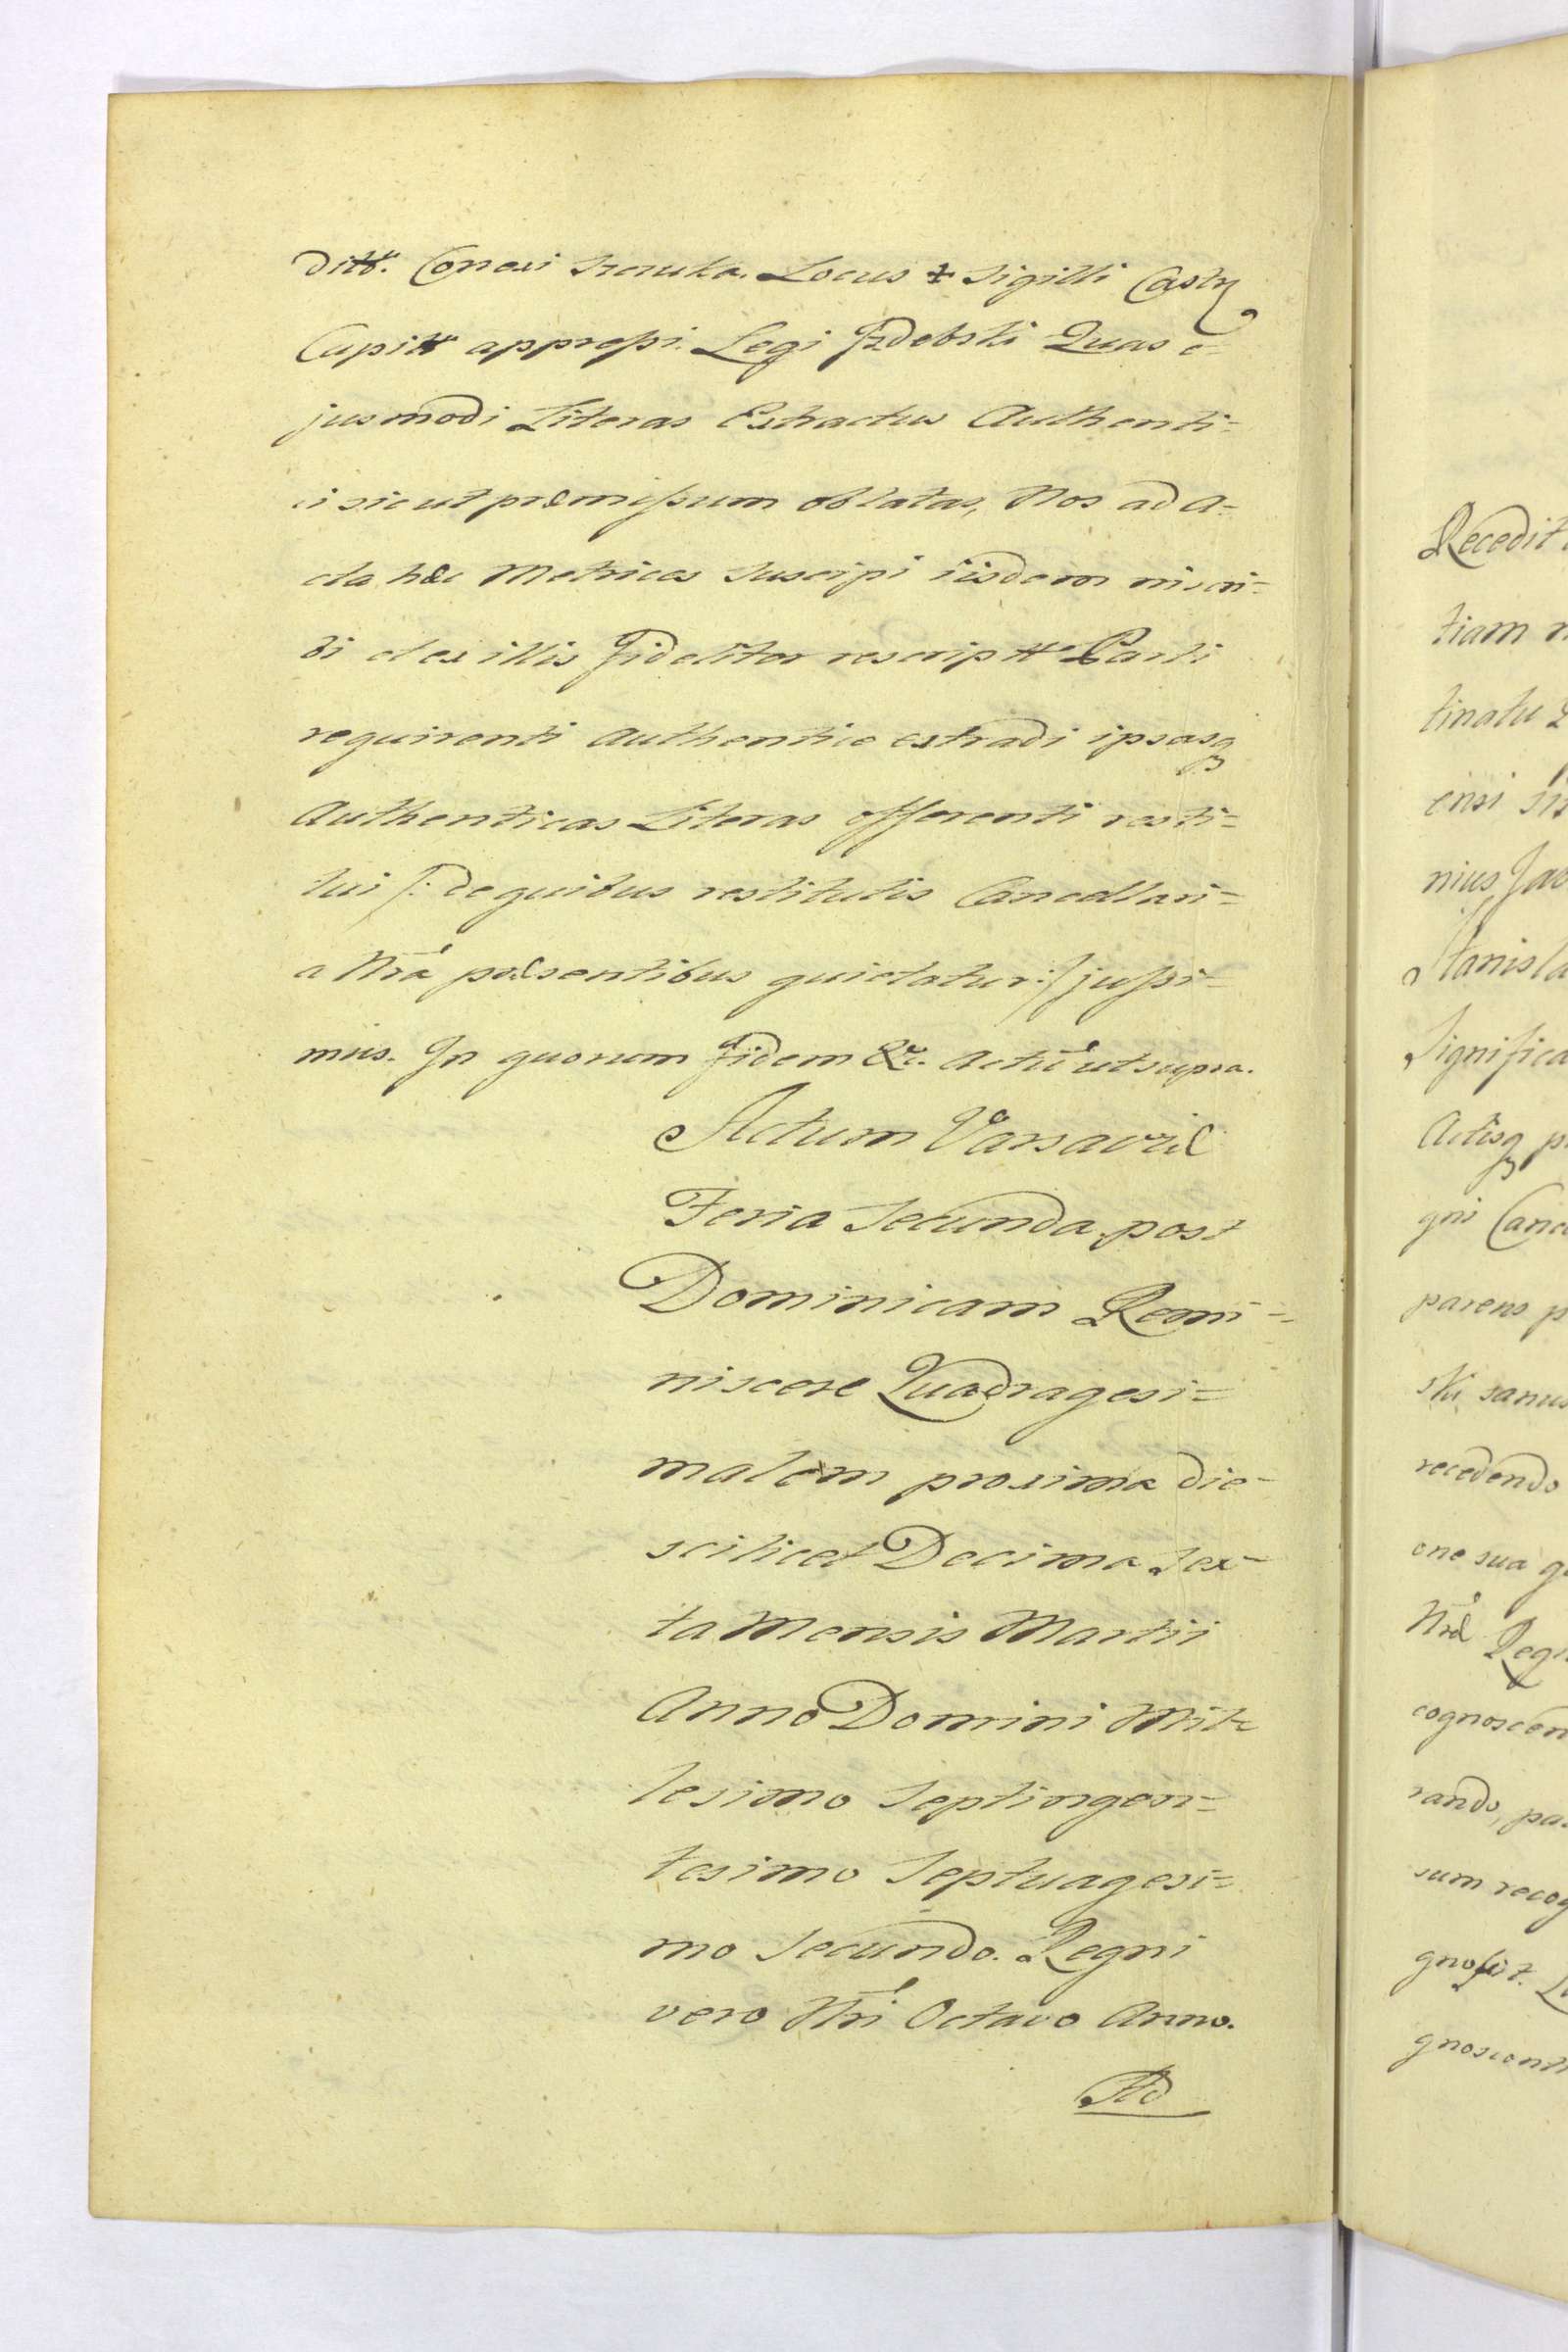 ditt. Conexi Locus + Sigilli Castr
Capitt appressi. Legi Izdebski Quas e-
jusmodi Literas Extractus Authenti=
ci sicut præmissum oblatas, Nos ad A=
cta hæc Metrices suscipi iisdem inscri=
bi et ex illis Fideliter rescriptt Parti
requirenti authentice extradi ipsasq
Authenticas Literas offerenti resti=
tui /: de quibus restitutis Cancellari=
a Nra præsentibus quietatur :/ jussi=
mus. In quorum fidem &c. Actu ut supra.
Actum Varsaviæ
Feria Secunda post
Dominicam Remi=
niscere Quadragesi=
malem proxima die
scilicet Decima Sex=
ta Mensis Martii
Anno Domini Mil=
lesimo Septingen=
tesimo Septuagesi=
mo Secundo. Regni
vero Nri Octavo Anno.
Ad
Recedit
tiam
tinatu
ensi
nius Jac
Stanisla
Significa
Actisq
gni Canc
parens
ski sanus
recedendo
one sua
Næ Regn
cognoscen
rando,
sum recog
gnoscit.
gnoscenti